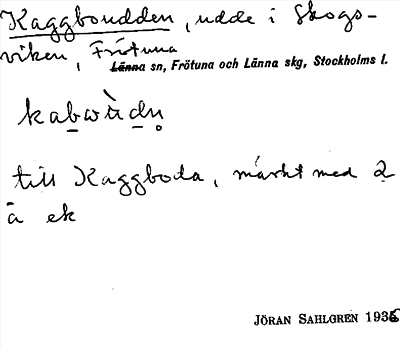 Kaggboudden, udde i Skogs-
viken, Frötuna
Länna sn, Frötuna och Länna skg, Stockholms l.
kabωὰdn̥
till Kaggboda, märkt med 2
å ek
JÖRAN SAHLGREN 1936